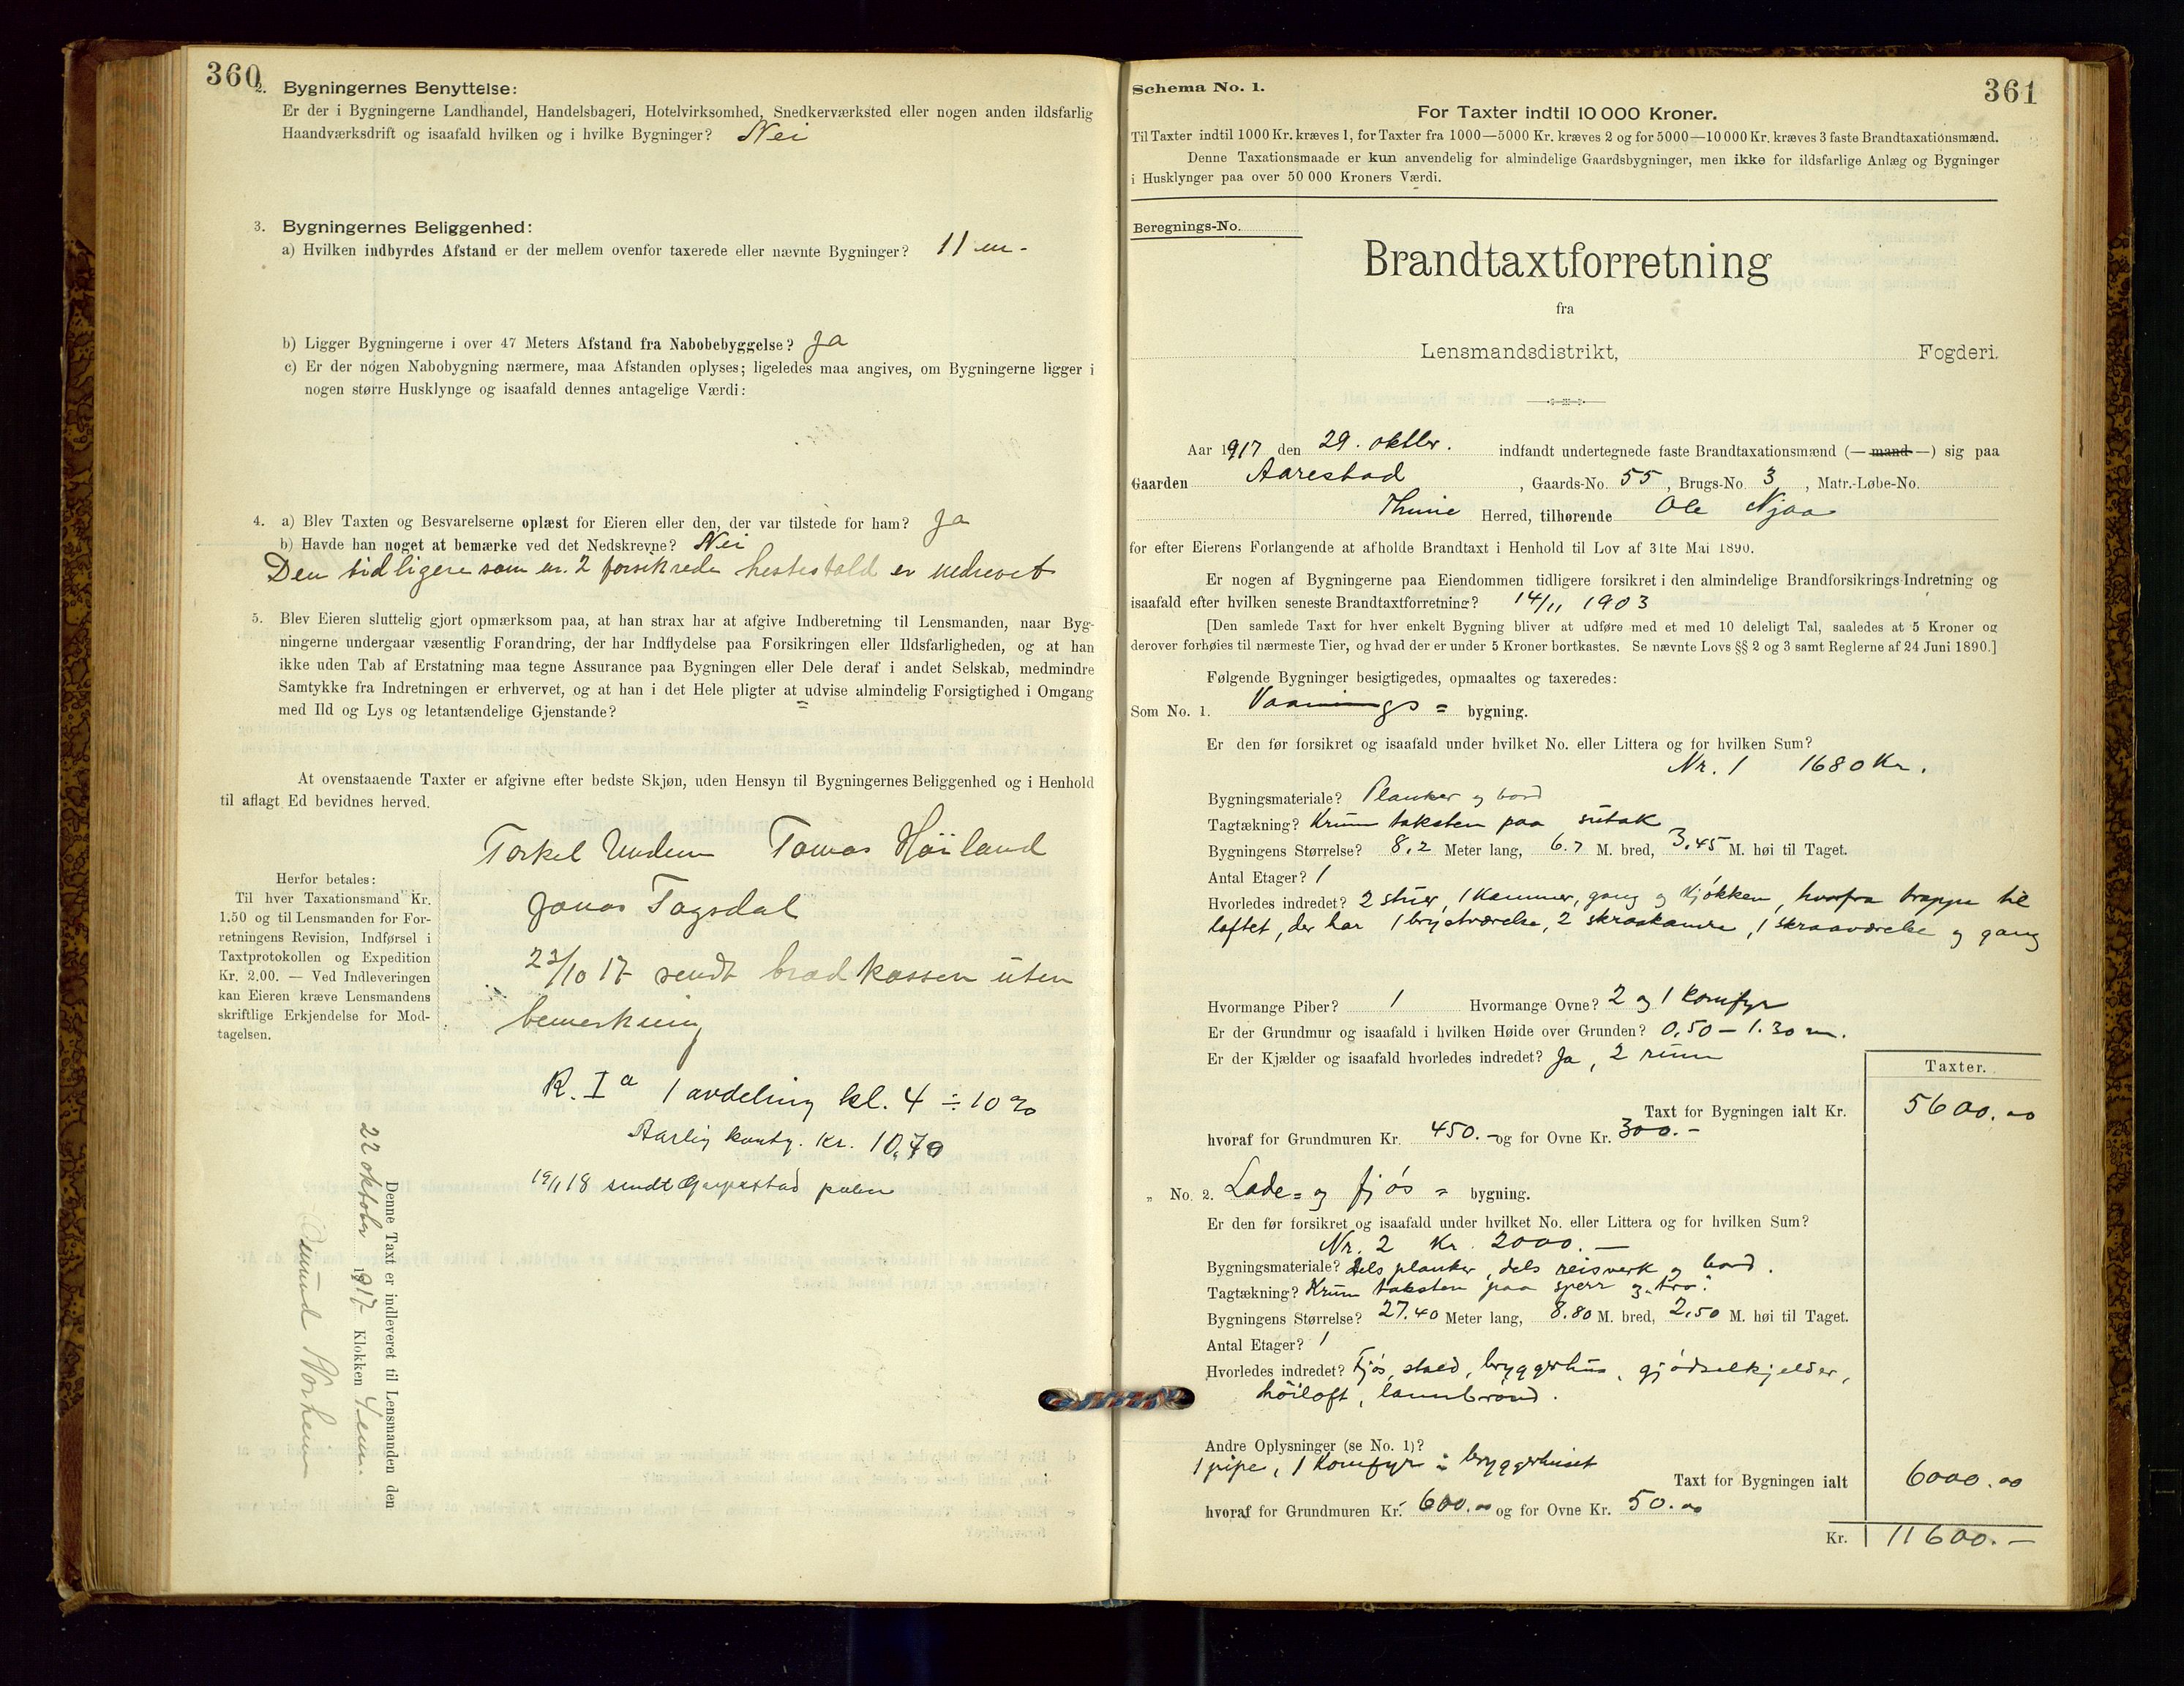 360
2. Bygningernes Benyttelse:
Er der i Bygningerne Landhandel, Handelsbageri, Hotelvirksomhed, Snedkerværksted eller nogen anden ildsfarlig
Haandværksdrift og isaafald hvilken og i hvilke Bygninger? Nei
3. Bygningernes Beliggenhed:
a) Hvilken indbyrdes Afstand er der mellem ovenfor taxerede eller nævnte Bygninger? 11 m -
b) Ligger Bygningerne i over 47 Meters Afstand fra Nabobebyggelse? Ja
c) Er der nogen Nabobygning nærmere, maa Afstanden oplyses; ligeledes maa angives, om Bygningerne ligger i
nogen større Husklynge og isaafald dennes antagelige Værdi:
4. a) Blev Taxten og Besvarelserne oplæst for Eieren eller den, der var tilstede for ham? Ja
b) Havde han noget at bemærke ved det Nedskrevne? Nei
Den tidligere som nr. 2 forsikrede hestestald er nedrevet
5. Blev Eieren sluttelig gjort opmærksom paa, at han strax har at afgive Indberetning til Lensmanden, naar Byg-
ningerne undergaar væsentlig Forandring, der har Indflydelse paa Forsikringen eller Ildsfarligheden, og at han
ikke uden Tab af Erstatning maa tegne Assurance paa Bygningen eller Dele deraf i andet Selskab, medmindre
Samtykke fra Indretningen er erhvervet, og at han i det Hele pligter at udvise almindelig Forsigtighed i Omgang
med Ild og Lys og letantændelige Gjenstande? =
At ovenstaaende Taxter er afgivne efter bedste Skjøn, uden Hensyn til Bygningernes Beliggenhed og i Henhold
til aflagt Ed bevidnes herved.
Torkel Undem Tomas Høiland
Jonas Tagsdal
Herfor betales:
Til hver Taxationsmand Kr.
1.50 og til Lensmanden for For-
retningens Revision, Indførsel i
Taxtprotokollen og Expedition
Kr. 2.00. — Ved Indleveringen
kan Eieren kræve Lensmandens
skriftlige Erkjendelse for Mod-
tagelsen.
23/10 17 sendt brandkassen uten
bemerkning
R. I a 1 avdeling kl. 4 ÷ 10 %
Aarlig konty. Kr. 10,70
19/1 18 sendt polise
Denne Taxt er indleveret til Lensmanden den
22 oktober 1917 Klokken 4 em.
361
Schema No. 1.
For Taxter indtil 10 000 Kroner.
Til Taxter indtil 1000 Kr. kræves 1, for Taxter fra 1000—5000 Kr. kræves 2 og for 5000—10 000 Kr. kræves 3 faste Brandtaxationsmænd.
Denne Taxationsmaade er kun anvendelig for almindelige Gaardsbygninger, men ikke for ildsfarlige Anlæg og Bygninger
i Husklynger paa over 50 000 Kroners Værdi.
Beregnings-No.
Brandtaxtforretning
fra
Lensmandsdistrikt, Fogderi.
Aar 1917 den 29. oktbr. indfandt undertegnede faste Brandtaxationsmænd (— mand —) sig paa
Gaarden Aarestad, Gaards-No. 55, Brugs-No. 3, Matr.-Løbe-No.
Thime Herred, tilhørende Ole Njaa
for efter Eierens Forlangende at afholde Brandtaxt i Henhold til Lov af 31te Mai 1890.
Er nogen af Bygningerne paa Eiendommen tidligere forsikret i den almindelige Brandforsikrings-Indretning og
isaafald efter hvilken seneste Brandtaxtforretning? 14/11 1903
[Den samlede Taxt for hver enkelt Bygning bliver at udføre med et med 10 deleligt Tal, saaledes at 5 Kroner og
derover forhøies til nærmeste Tier, og hvad der er under 5 Kroner bortkastes. Se nævnte Lovs §§ 2 og 3 samt Reglerne af 24 Juni 1890.]
Følgende Bygninger besigtigedes, opmaaltes og taxeredes:
Som No. 1. Vaanings = bygning.
Er den før forsikret og isaafald under hvilket No. eller Littera og for hvilken Sum?
Nr. 1 1680 Kr.
Bygningsmateriale? Planker og bord
Tagtækning? Krum taksten paa sutak
Bygningens Størrelse? 8.2 Meter lang, 6.7 M. bred, 3.45 M. høi til Taget.
Antal Etager? 1
Hvorledes indredet? 2 stuer, 1 kammer, gang og kjøkken, hvorfra trappe til
loftet, der har 1 brystværelse, 2 skraakamre, 1 skraaværelse og gang
Hvormange Piber? 1 Hvormange Ovne? 2 og 1 komfyr
Er der Grundmur og isaafald i hvilken Høide over Grunden? 0,50 — 1.30 m.
Er der Kjælder og isaafald hvorledes indredet? Ja, 2 rum
Taxter.
Taxt for Bygningen ialt Kr. 5600.00
hvoraf for Grundmuren Kr. 450.- og for Ovne Kr. 300.-
„ No. 2. Lade= og fjøs = bygning.
Er den før forsikret og isaafald under hvilket No. eller Littera og for hvilken Sum?
Nr. 2 Kr. 2000.—
Bygningsmateriale? dels planker, dels reisverk og bord.
Tagtækning? Krum taksten paa sperr og tro.
Bygningens Størrelse? 27.40 Meter lang, 8.80 M. bred, 2,50 M. høi til Taget.
Antal Etager? 1
Hvorledes indredet? Fjøs, stald, bryggerhus, gjødselkjelder,
høiloft, lannbrønd.
Andre Oplysninger (se No. 1)?
1 pipe, 1 komfyr i bryggerhuset
Taxt for Bygningen ialt 6000.00
hvoraf for Grundmuren Kr. 600.00 og for Ovne Kr. 50.00
Kr. 11600.—